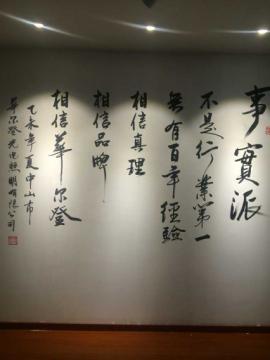 事實派
不是行業第一
無有百年經驗
相信真理
相信品牌
相信華尔登
乙未年夏中山市
華尔登光电照明有限公司